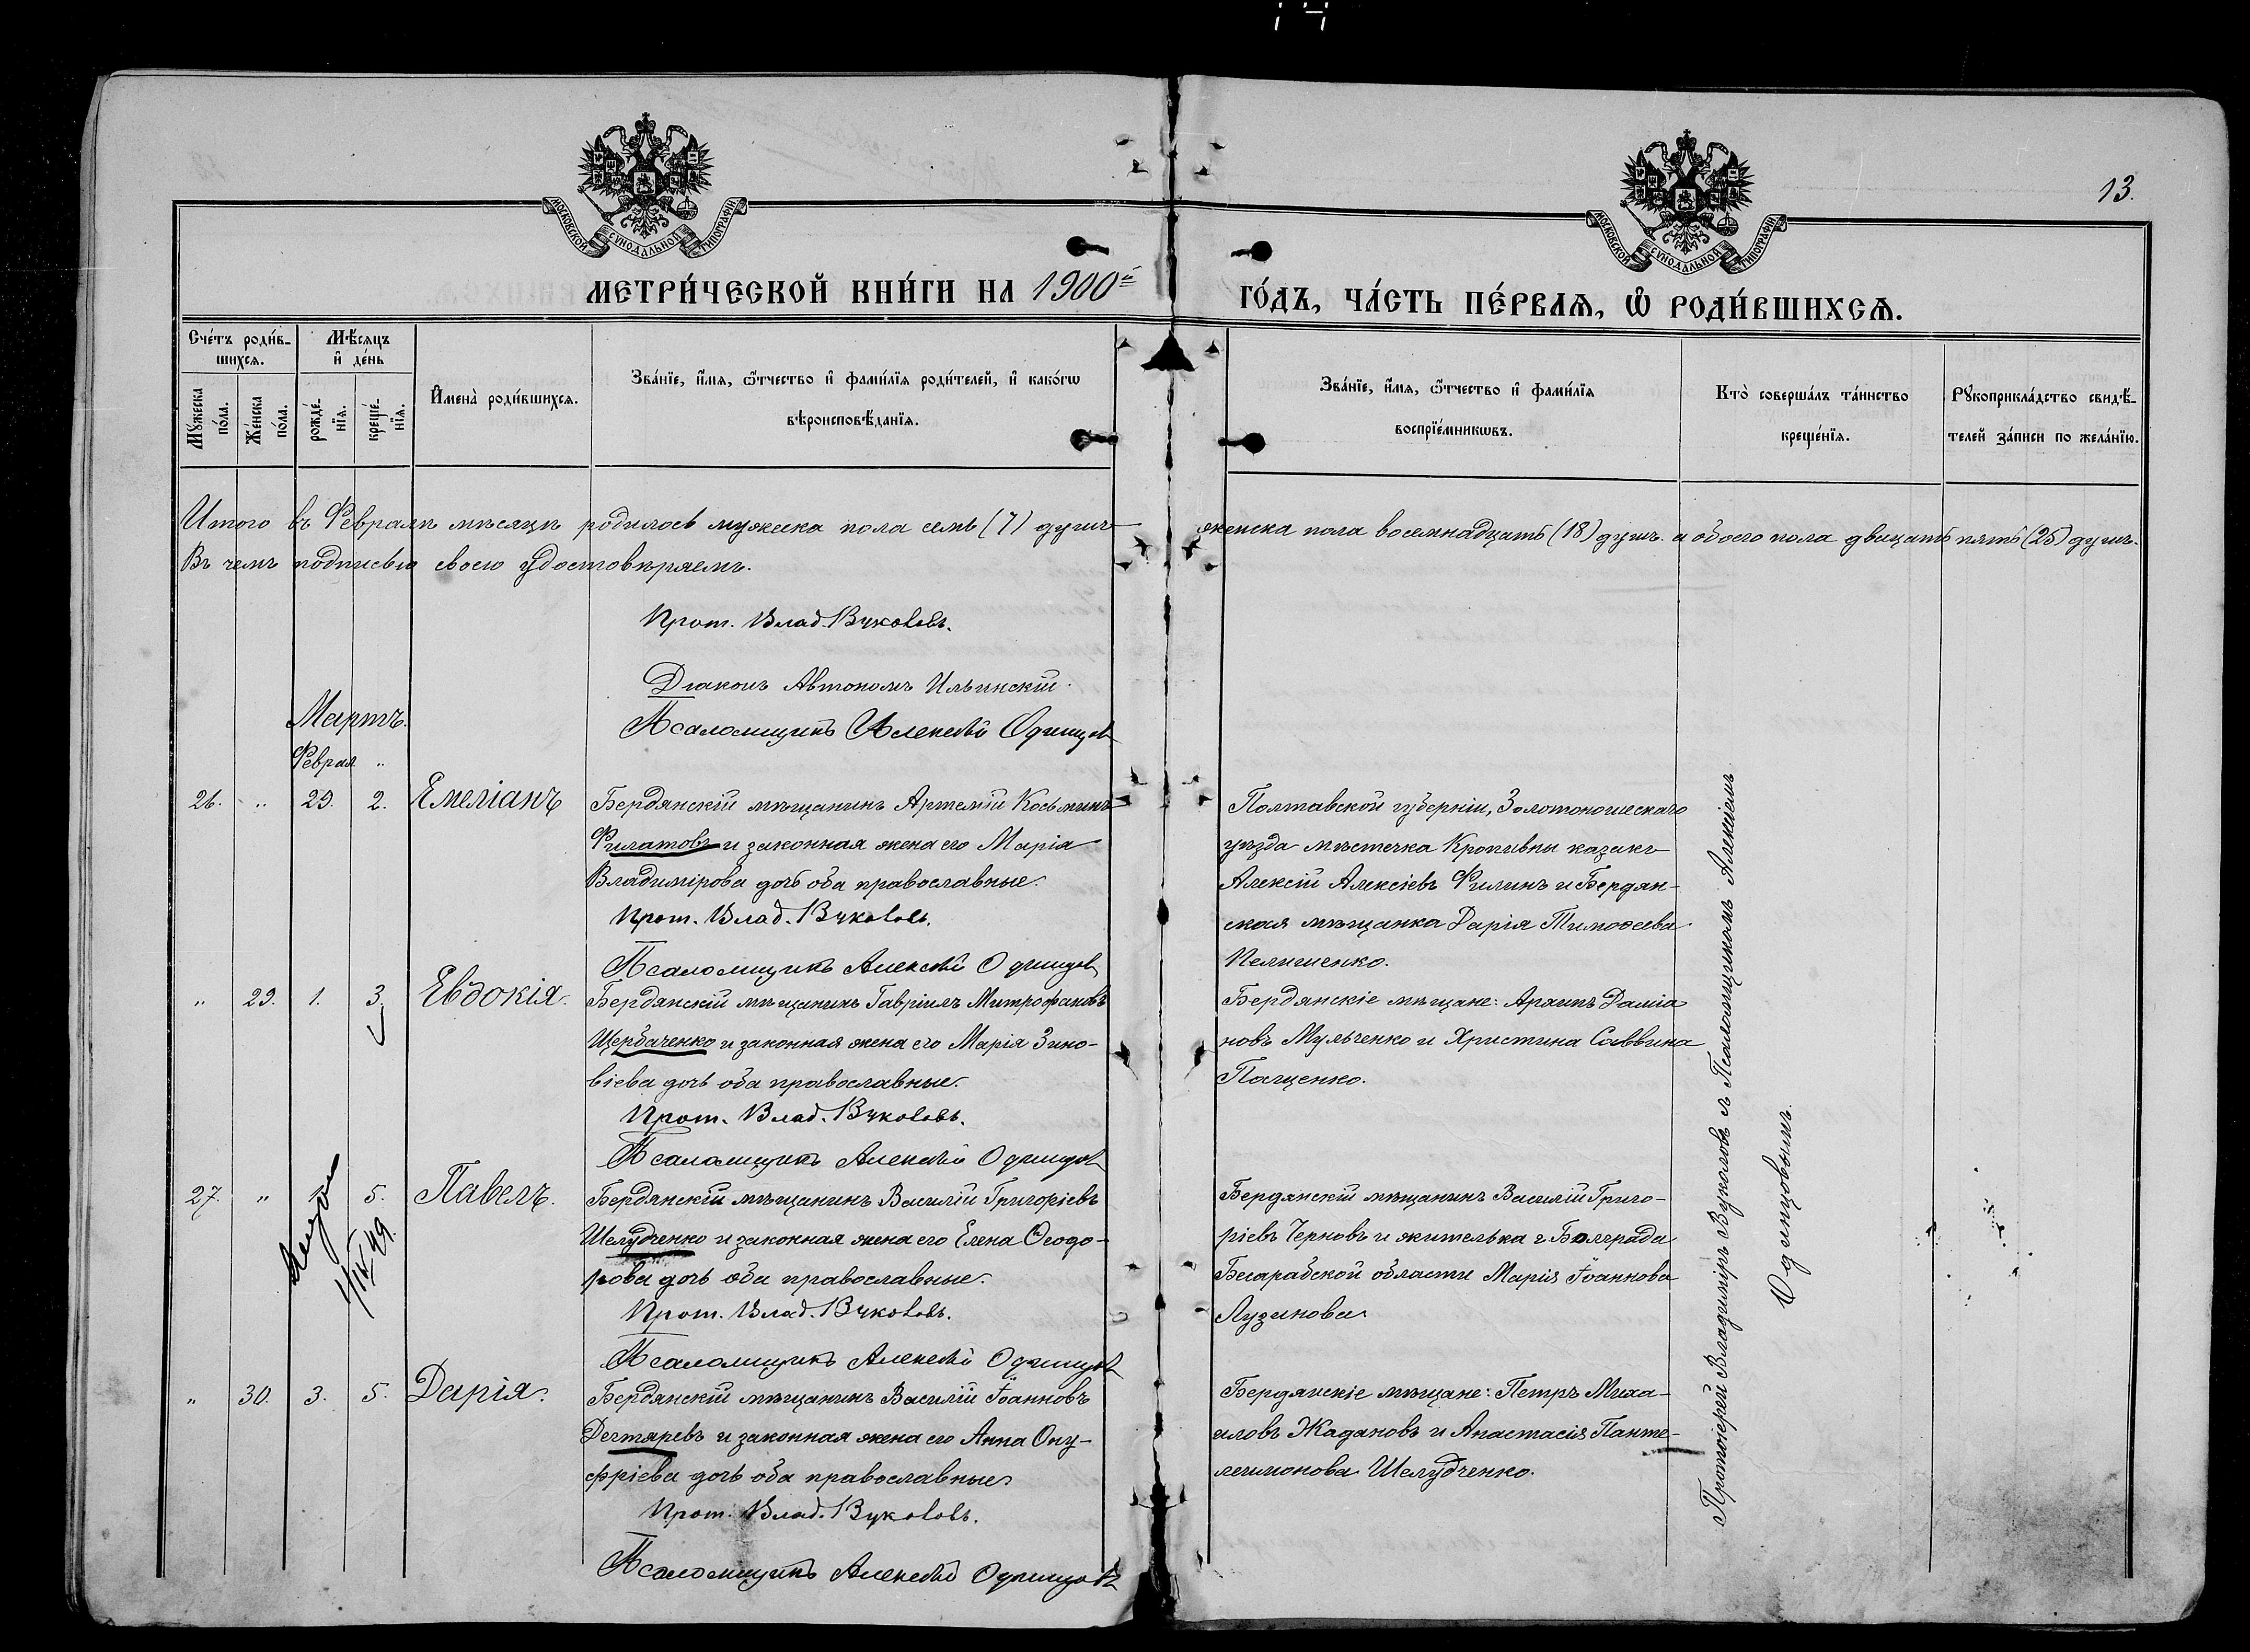 13.
МОСКОВСКОЙ СУНОДАЛЬНОЙ ТИПОГРАФІИ
МОСКОВСКОЙ СУНОДАЛЬНОЙ ТИПОГРАФІИ
МЕТРИ́ЧЕСКОЙ КНИ́ГИ НА 1900й
ГО́ДЪ, ЧА́СТЬ ПЕ́РВАѦ, Ѡ РОДИ́ВШИХСѦ.
Сче́тъ роди́в-
шихсѧ.
Мѣ́сяцъ
и҆ де́нь
Мꙋ́жеска
по́ла.
Же́нска
по́ла.
рожде́-
нїѧ.
креще́-
нїѧ.
И҆мена̀ роди́вшихсѧ.
Зва́нїе, и҆́мѧ, ѻ҆́тчество и҆ фами́лїѧ роди́телей, и҆ како́гѡ
вѣроисповѣ́данїѧ.
Зва́нїе, и҆́мѧ, ѻ҆́тчество и҆ фами́лїѧ
воспрїе́мникѡвъ.
Кто̀ соверша́лъ та́инство
креще́нїѧ.
Рꙋкоприкла́дство свидѣ́-
телей за́писи по жела́нїю.
Итого въ Февралѣ мѣсяцѣ родилось мужеска пола семь (7) душъ
женска пола восемнадцать (18) душъ. а обоего пола двацать пять (25) душъ.
Въ чемъ подписью своею удостовѣряемъ.
Прот. Влад. Вуколовъ.
Діаконъ Автономъ Ильинскій.
Псаломщикъ Алексѣй Одинцовъ
Мартъ.
Феврал "
26. " 29. 2. Емеліанъ
Бердянскій мѣщанинъ Артемій Косьминъ
Филатовъ и законная жена его Марія
Владимірова дочь оба православные.
Прот. Влад. Вуколовъ.
Псаломщикъ Алексѣй Одинцовъ
Полтавской губерніи, Золотоношескаго
уѣзда мѣстечка Кропивны казакъ
Алексій Алексіевъ Филинъ и Бердян-
ская мѣщанка Дарія Тимоѳеева
Пелишенко.
" 29. 1. 3. Евдокія.
Бердянскій мѣщанинъ Гавріилъ Митрофановъ
Щербаченко и законная жена его Марія Зино-
віева дочь оба православные.
Прот. Влад. Вуколовъ.
Псаломщикъ Алексѣй Одинцовъ
Бердянскіе мѣщане: Архипъ Даміа
новъ Мульченко и Христина Саввина
Пащенко.
27. " 5. Павелъ.
1/IX 49.
Бердянскій мѣщанинъ Василій Григоріевъ
Шелудченко и законная жена его Елена Ѳеодо-
рова дочь оба православные.
Прот. Влад. Вуколовъ.
Псаломщикъ Алексѣй Одинцовъ
Бердянскій мѣщанинъ Василій Григо-
ріевъ Черновъ и жителька г. Болграда
Бесарабской области Марія Іоаннова
Лузанова.
" 30. 3. 5. Дарія.
Бердянскій мѣщанинъ Василій Іоанновъ
Дегтяревъ и законная жена его Анна Ону-
фріева дочь оба православные.
Прот. Влад. Вуколовъ.
Псаломщикъ Алексѣй Одинцовъ
Бердянскіе мѣщане: Петръ Миха-
иловъ Жадановъ и Анастасія Панте-
леимонова Шелудченко.
Протоіерей Владиміръ Вуколовъ съ Псаломщикомъ Алексіемъ
Одинцовымъ.